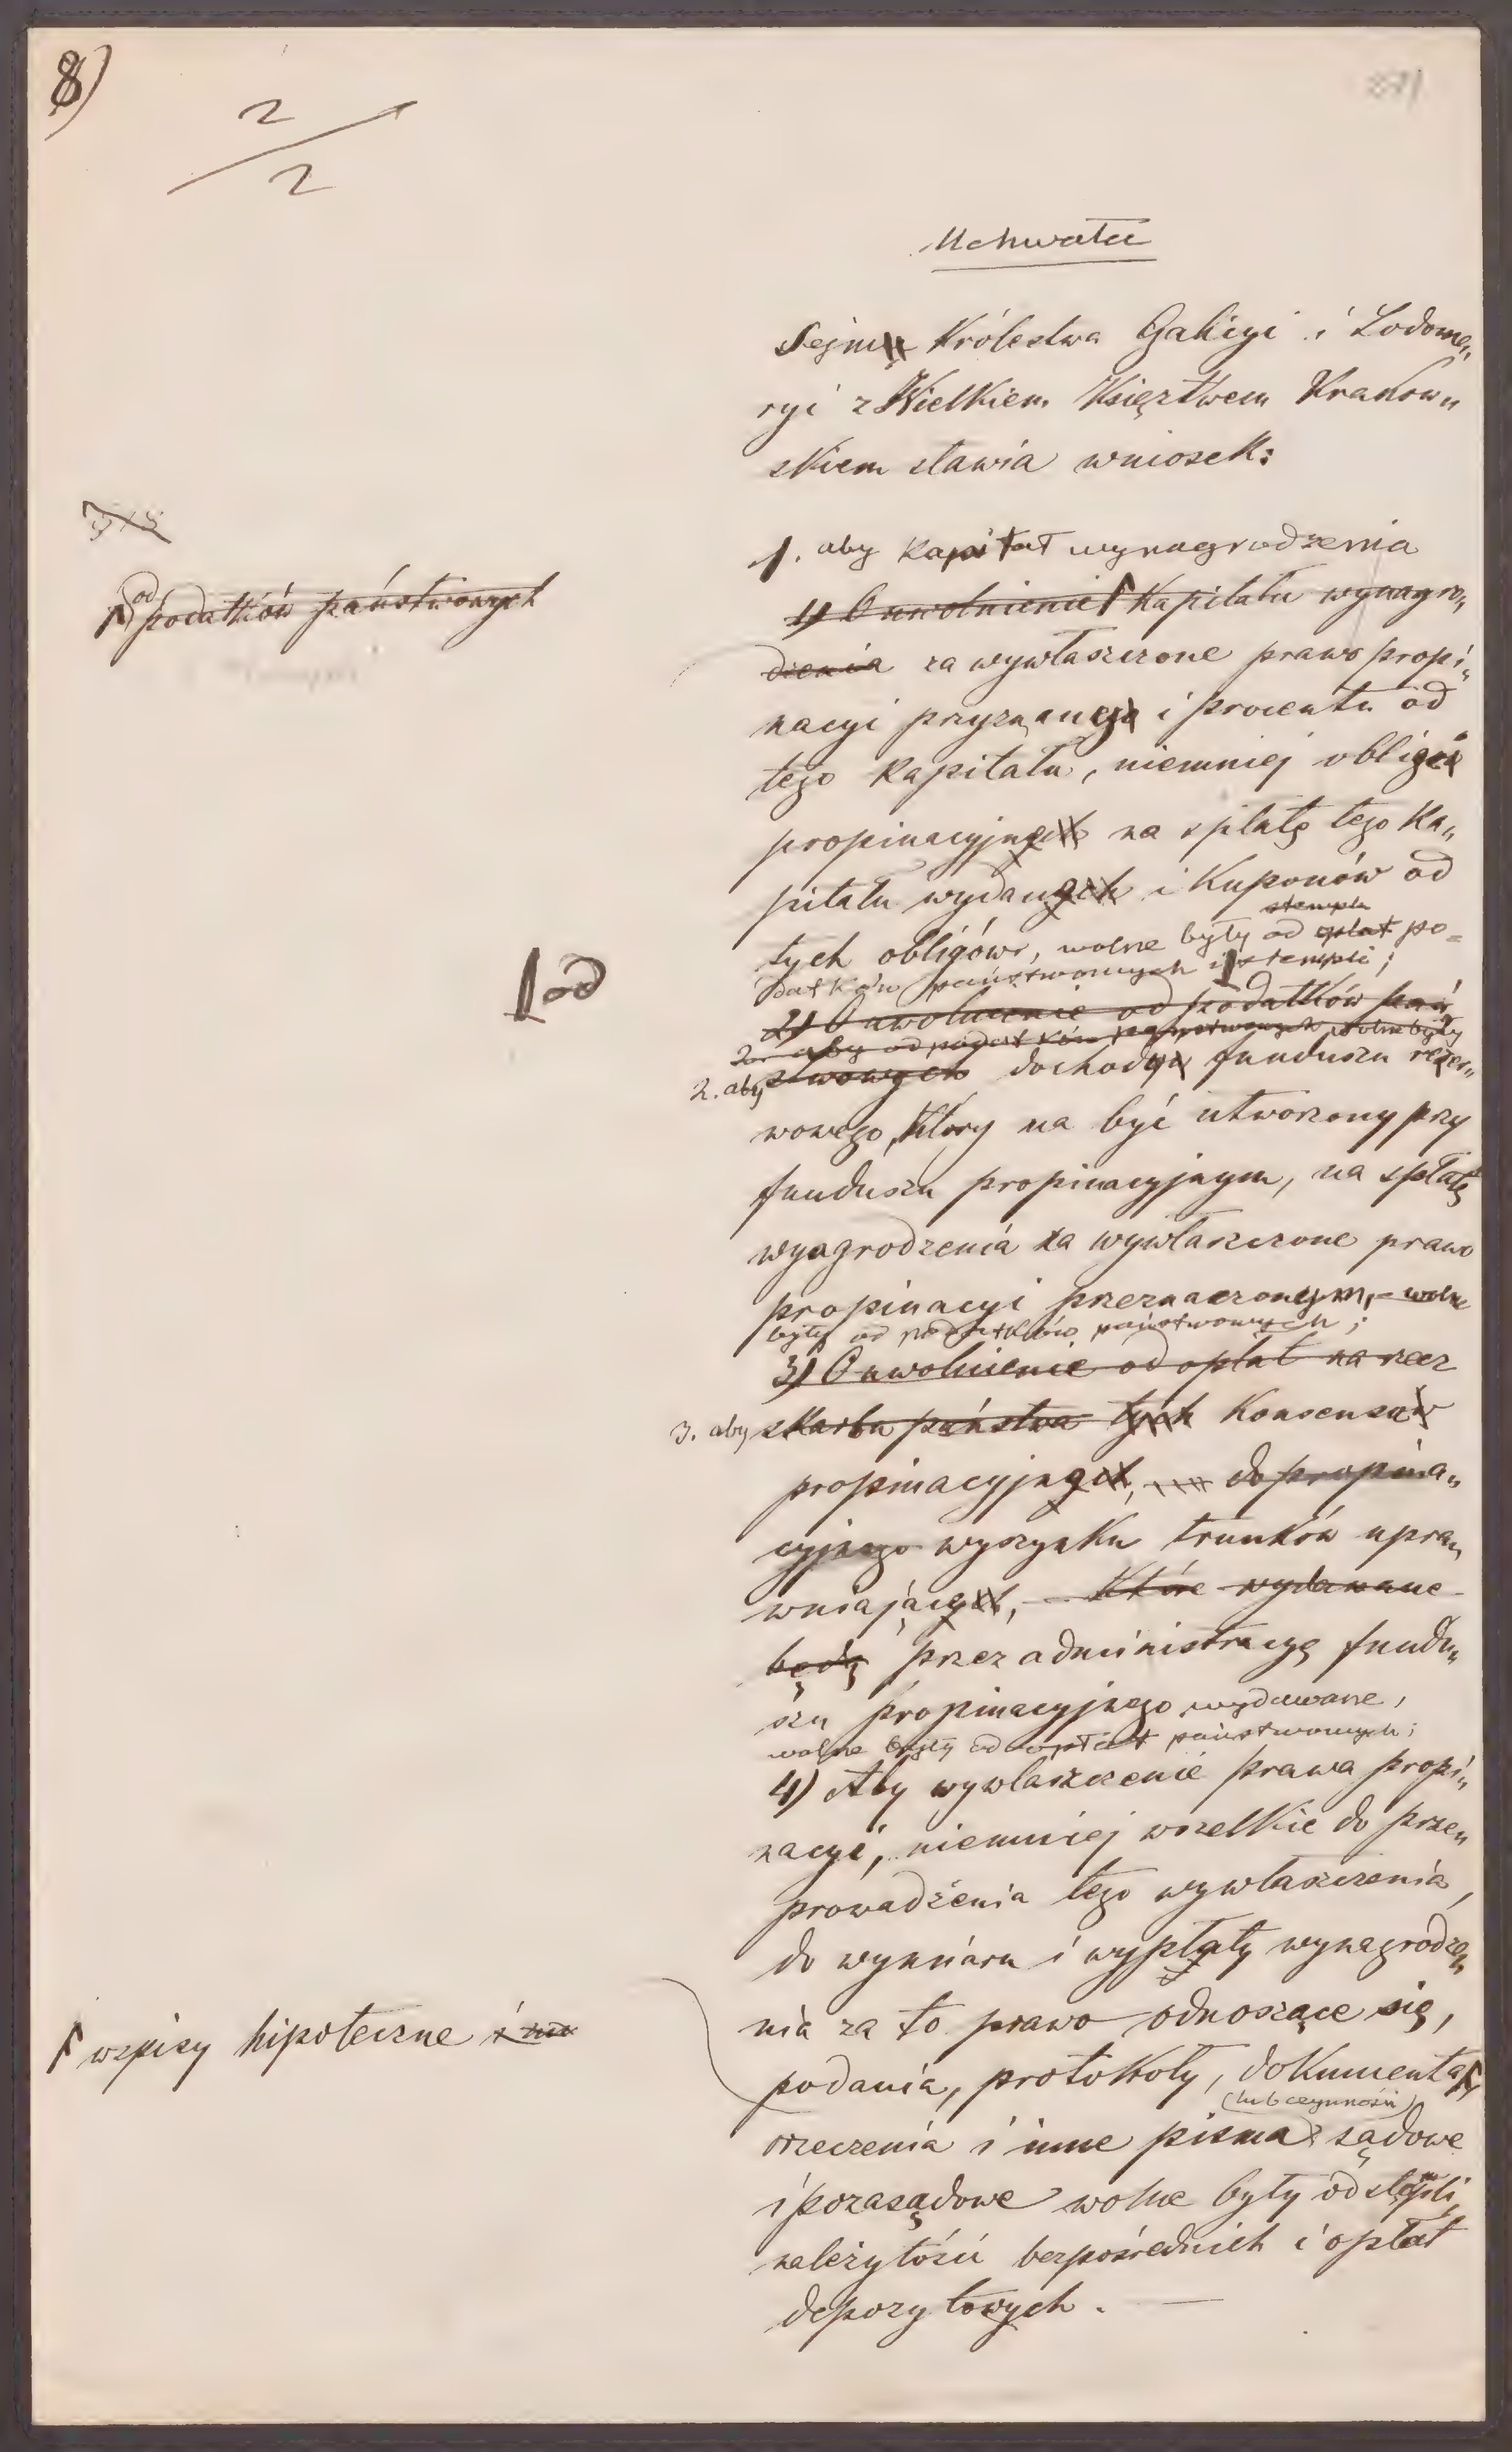 8)
2
2
Uchwała
Sejm Królestwa Galicyi i Lodome„
ryi z Wielkiem Księztwem Krakow„
skiem stawia wniosek:
1. aby kapitał wynagrodzenia
od podatków państwowych
1) Uwolnienie kapitału wynagro„
dzenia za wywłaszczone prawo propi„
nacyi przyznany i procenta od
tego kapitału, niemniej obligi
propinacyjne na spłatę tego ka„
pitału wydane i kuponów od
stempla
tych obligów, wolne były od opłat po=
datków państwowych i stempli;
od
2) Uwolnienie od podatków pań
2. aby od podatków państwowych wolne były
2. aby stwowych dochody funduszu rezer„
wowego, który ma być utworzony przy
funduszu propinacyjnym, na spłatę
wynagrodzenia za wywłaszczone prawo
propinacyi przeznaczonym, – wolne
były od podatków państwowych;
3) Uwolnienie od opłat na rzecz
3. aby skarbu państwa tych konsensa
propinacyjne, do propina„
cyjnego wyszynku trunków upra„
wniające, – które wydawane
będą przez administracyę fundu„
szu propinacyjnego wydawane,
wolne były od opłat państwowych;
4) Aby wywłaszczenie prawa propi„
nacyi, niemniej wszelkie do prze„
prowadzenia tego wywłaszczenia,
do wymiaru i wypłaty wynagrodze„
nia za to prawo odnoszące się,
wpisy hipoteczne i inne
podania, protokoły, dokumenta,
(lub czynności)
orzeczenia i inne pisma sądowe
i pozasądowe wolne były od stempli,
należytości bezpośrednich i opłat
depozytowych. —